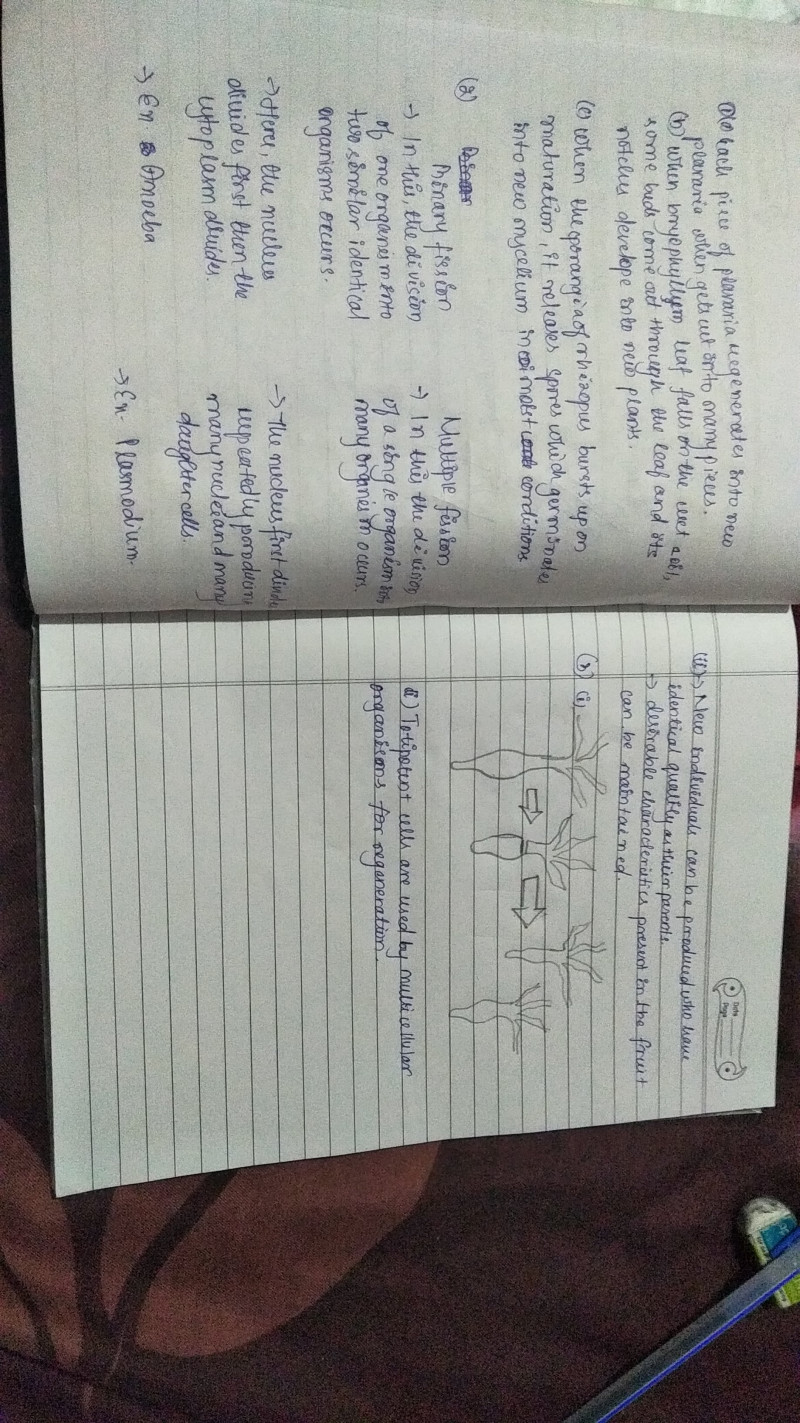 (1)(a) Each piece of planaria regenerates into new
planaria when gets cut into many pieces.
(b) when bryophyllym leaf falls on the wet soil,
some buds come out through the leaf and its
notches develope into new plants.
(c) when the sporangia of rhizopus bursts upon
maturation, it releases spores which germinates
into new mycelium in moist conditions
(2) Binary fission
→ In this, the division
of one organism into
two similar identical
organisms occurs.
→ Here, the nucleus
divides first then the
cytoplasm divides.
→ Ex. Amoeba
Multiple fission
→ In this the division
of a single organism into
many organism occurs.
→ The nucleus first divide
repeatedly producing
many nuclei and many
daughter cells.
→ Ex- Plasmodium.
Date
Page
(iii)→ New individuals can be produced who have
identical quality as their parents.
→ desirable characteristics present in the fruit
can be maintained.
(3) (i)
ii) Totipotent cells are used by multicellular
organisms for regeneration.